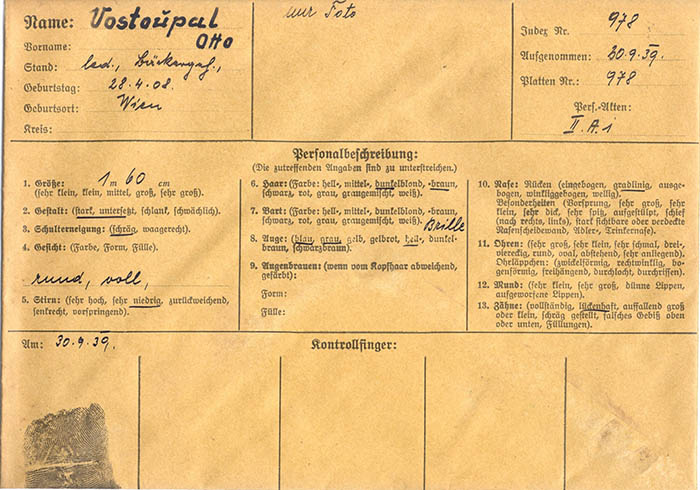 Name: Vostoupal
Vorname: Otto
Stand: led., Bäckergeh.,
Geburtstag: 28.4.08.
Geburtsort: Wien
Kreis:
nur Foto
Index Nr. 978
Aufgenommen: 20.9.39.
Platten Nr.: 978
Pers.-Akten:
II.A.1
Personalbeschreibung:
(Die zutreffenden Angaben sind zu unterstreichen.)
1. Größe: 1 m 60 cm
(sehr klein, klein, mittel, groß, sehr groß).
2. Gestalt: (stark, untersetzt, schlank, schwächlich).
3. Schulterneigung: (schräg, waagerecht).
4. Gesicht: (Farbe, Form, Fülle).
rund, voll,
5. Stirn: (sehr hoch, sehr niedrig, zurückweichend,
senkrecht, vorspringend).
6. Haar: (Farbe: hell-, mittel-, dunkelblond, -braun,
schwarz, rot, grau, graugemischt, weiß).
7. Bart: (Farbe: hell-, mittel-, dunkelblond, -braun,
schwarz, rot, grau, graugemischt, weiß). Brille
8. Auge: (blau, grau, gelb, gelbrot, hell-, dunkel-
braun, schwarzbraun).
9. Augenbrauen: (wenn vom Kopfhaar abweichend,
gefärbt):
Form:
Fülle:
10. Nase: Rücken (eingebogen, gradlinig, ausge-
bogen, winkliggebogen, wellig).
Besonderheiten (Vorsprung, sehr groß, sehr
klein, sehr dick, sehr spitz, aufgestülpt, schief
(nach rechts, links), stark sichtbare oder verdeckte
Nasenscheidewand, Adler-, Trinkernase).
11. Ohren: (sehr groß, sehr klein, sehr schmal, drei-,
viereckig, rund, oval, abstehend, sehr anliegend).
Ohrläppchen: (zwickelförmig, rechtwinklig, bo-
genförmig, freihängend, durchlocht, durchrissen).
12. Mund: (sehr klein, sehr groß, dünne Lippen,
aufgeworfene Lippen).
13. Zähne: (vollständig, lückenhaft, auffallend groß
oder klein, schräg gestellt, falsches Gebiß oben
oder unten, Füllungen).
Am: 30.9.39.
Kontrollfinger: